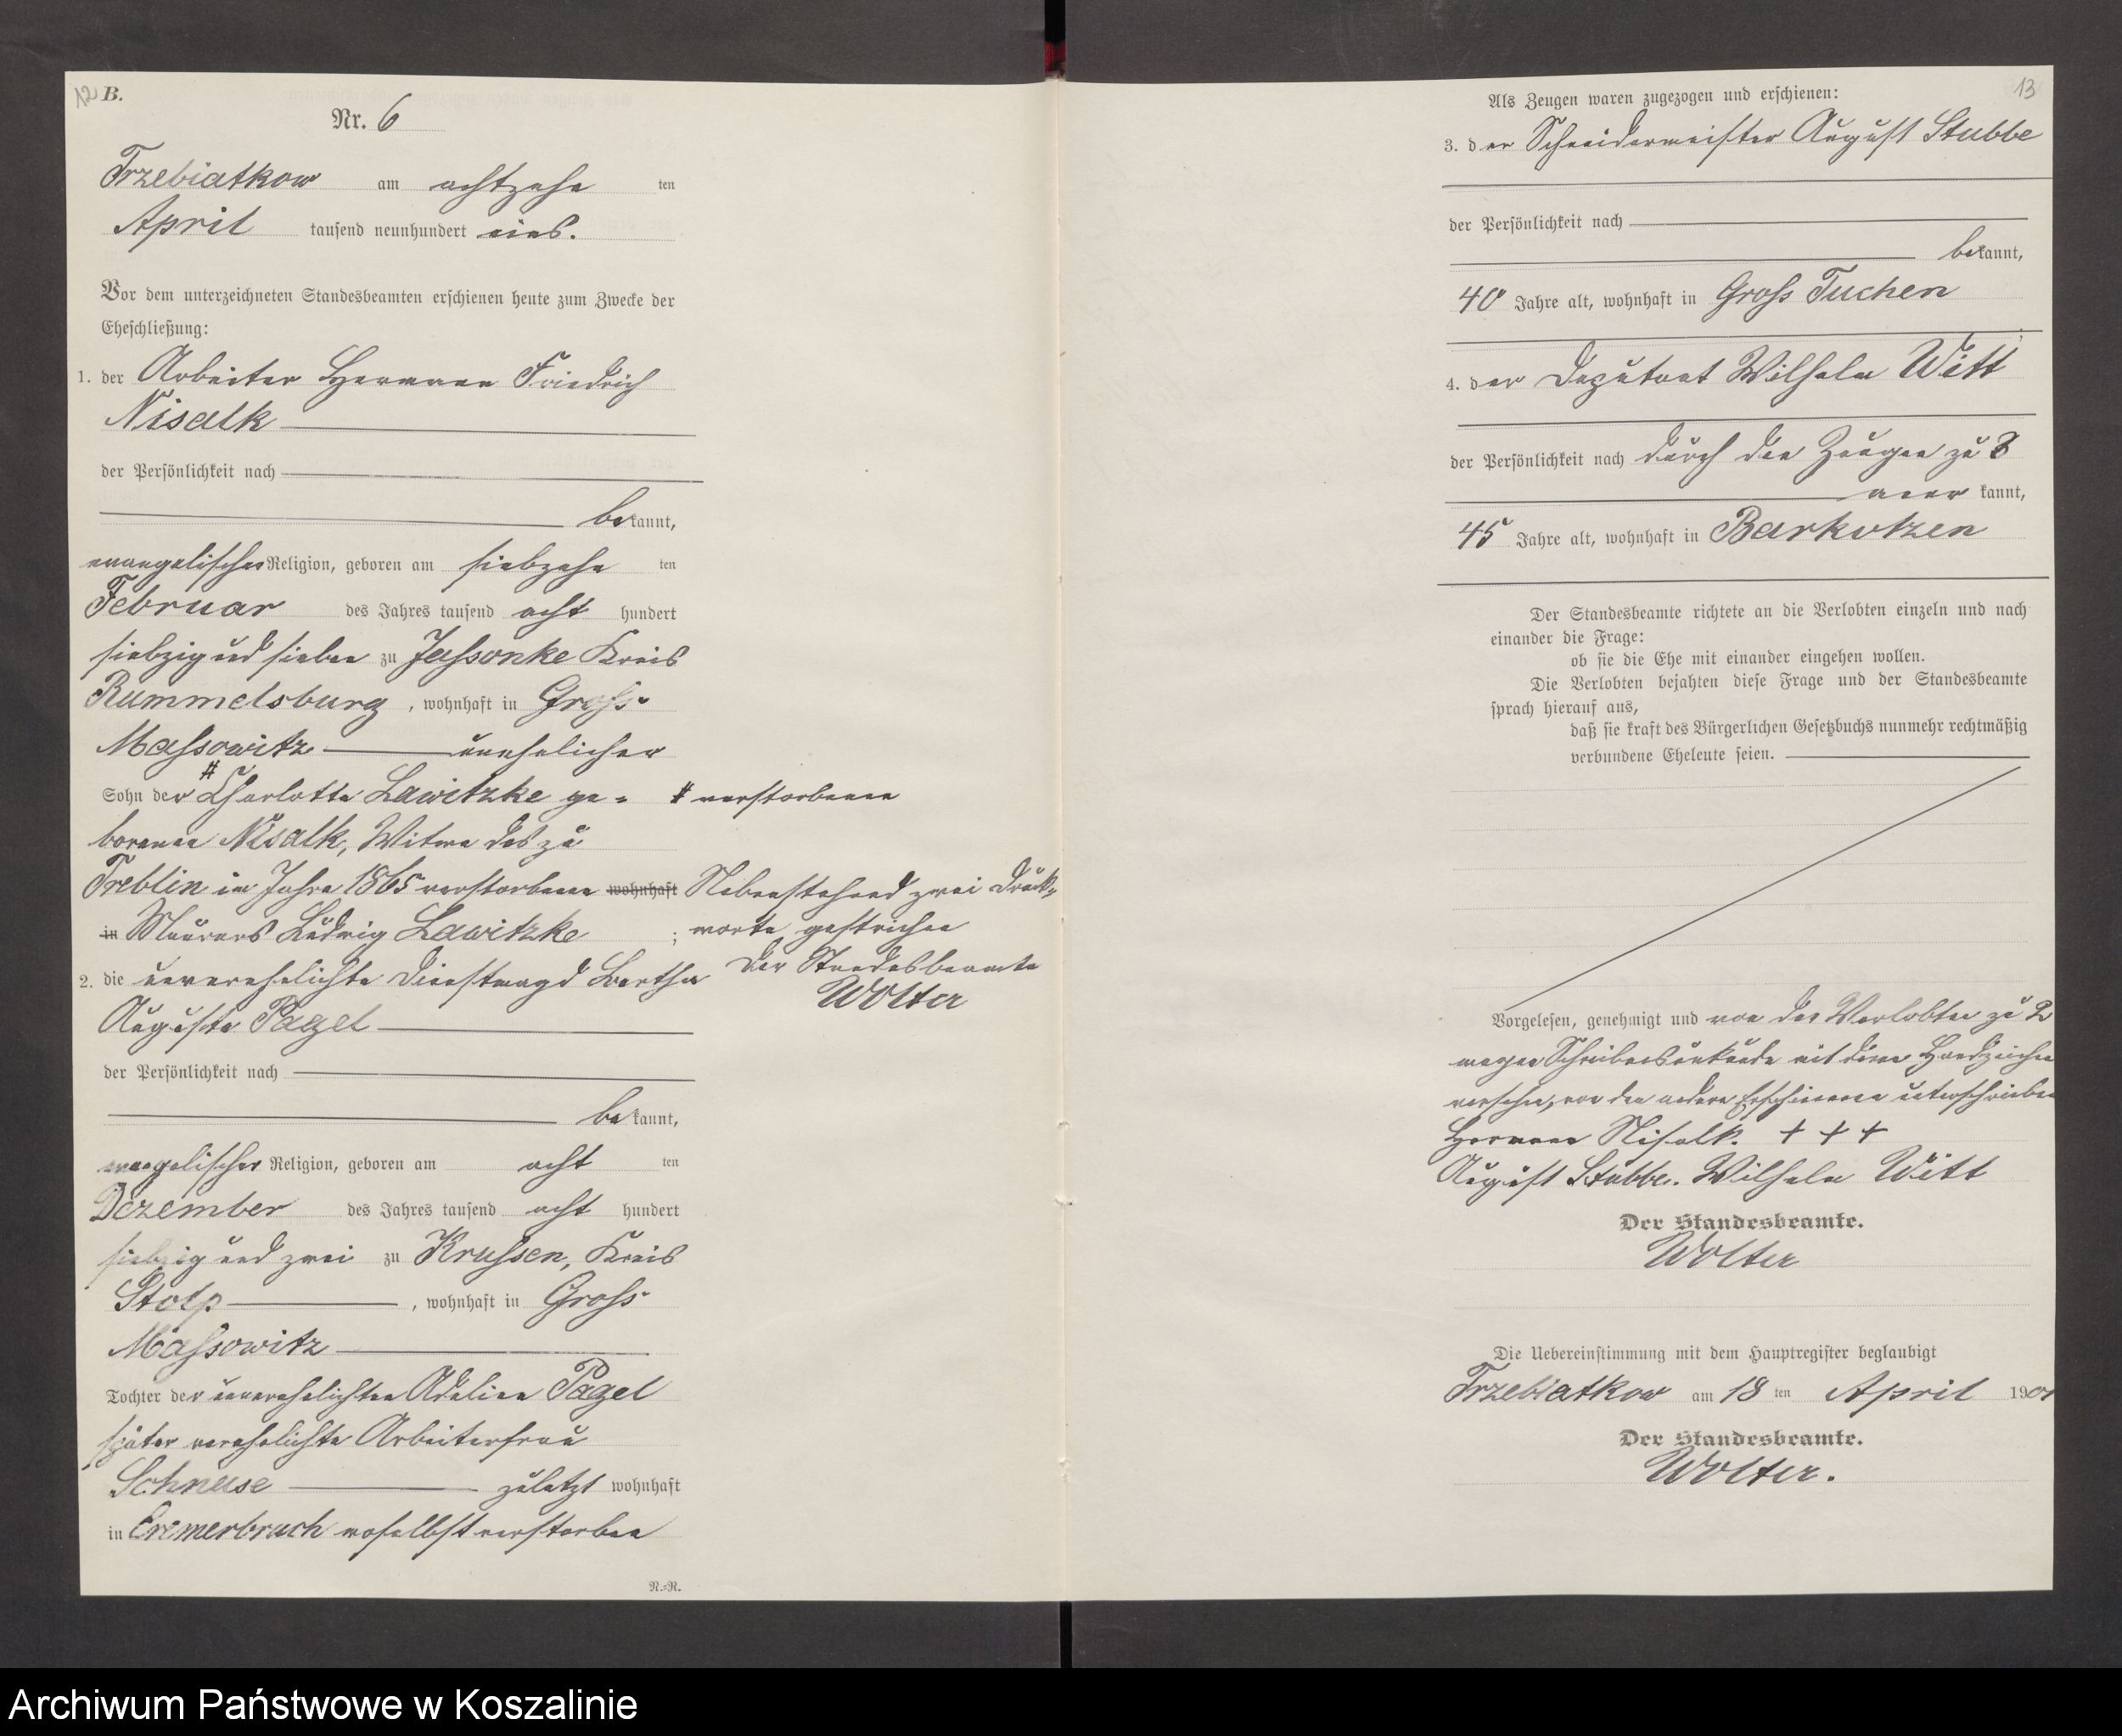 12 B.
Nr. 6
Trzebiatkow am achtzehn ten
April tausend neunhundert eins.
Vor dem unterzeichneten Standesbeamten erschienen heute zum Zwecke der
Eheschließung:
1. der Arbeiter Hermann Friedrich
Nisalk
der Persönlichkeit nach
bekannt,
evangelischer Religion, geboren am siebzehn ten
Februar des Jahres tausend acht hundert
siebzig und sieben zu Jassonke Kreis
Rummelsburg, wohnhaft in Gross-
Massowitz unehelicher
Sohn der # Charlotte Lawitzke ge-
# verstorbenen
borenen Nisalk, Witwe des zu
Treblin im Jahre 1865 verstorbenen wohnhaft
in Maurers Ludwig Lawitzke ;
Nebenstehend zwei Druck-
worte gestrichen
Der Standesbeamte
Wolter
2. die unverehelichte Dienstmagd Bertha
Auguste Pagel
der Persönlichkeit nach
bekannt,
evangelischer Religion, geboren am acht ten
Dezember des Jahres tausend acht hundert
siebzig und zwei zu Krussen, Kreis
Stolp, wohnhaft in Gross-
Massowitz
Tochter der unverehelichten Adeline Pagel
später verehelichte Arbeiterfrau
Schnese zuletzt wohnhaft
in woselbst verstorben
N.=N.
13
Als Zeugen waren zugezogen und erschienen:
3. der Schneidermeister August Stubbe
der Persönlichkeit nach
bekannt,
40 Jahre alt, wohnhaft in Gross Tuchen
4. der Deputant Wilhelm Witt
der Persönlichkeit nach durch den Zeugen zu 3
anerkannt,
45 Jahre alt, wohnhaft in Barkotzen
Der Standesbeamte richtete an die Verlobten einzeln und nach
einander die Frage:
ob sie die Ehe mit einander eingehen wollen.
Die Verlobten bejahten diese Frage und der Standesbeamte
sprach hierauf aus,
daß sie kraft des Bürgerlichen Gesetzbuchs nunmehr rechtmäßig
verbundene Eheleute seien.
Vorgelesen, genehmigt und von der Verlobten zu 2
wegen Schreibensunkunde mit ihrem Handzeichen
versehen, von den andern Erschienenen unterschrieben
Hermann Nisalk. + + +
August Stubbe. Wilhelm Witt
Der Standesbeamte.
Wolter
Die Uebereinstimmung mit dem Hauptregister beglaubigt
Trzebiatkow am 18 ten April 1901
Der Standesbeamte.
Wolter.
Archiwum Państwowe w Koszalinie